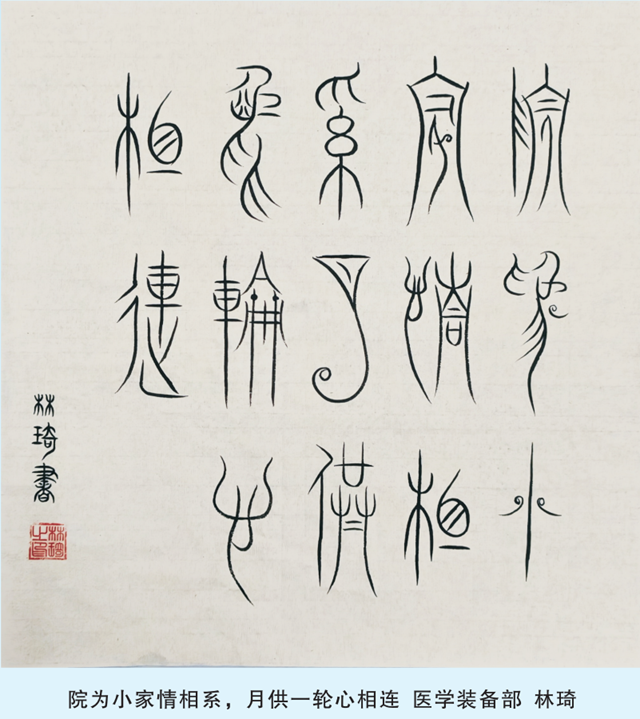 院為小
家情相
系月供
輪心
相連
林琦書
林琦之印
院为小家情相系，月供一轮心相连 医学装备部 林琦